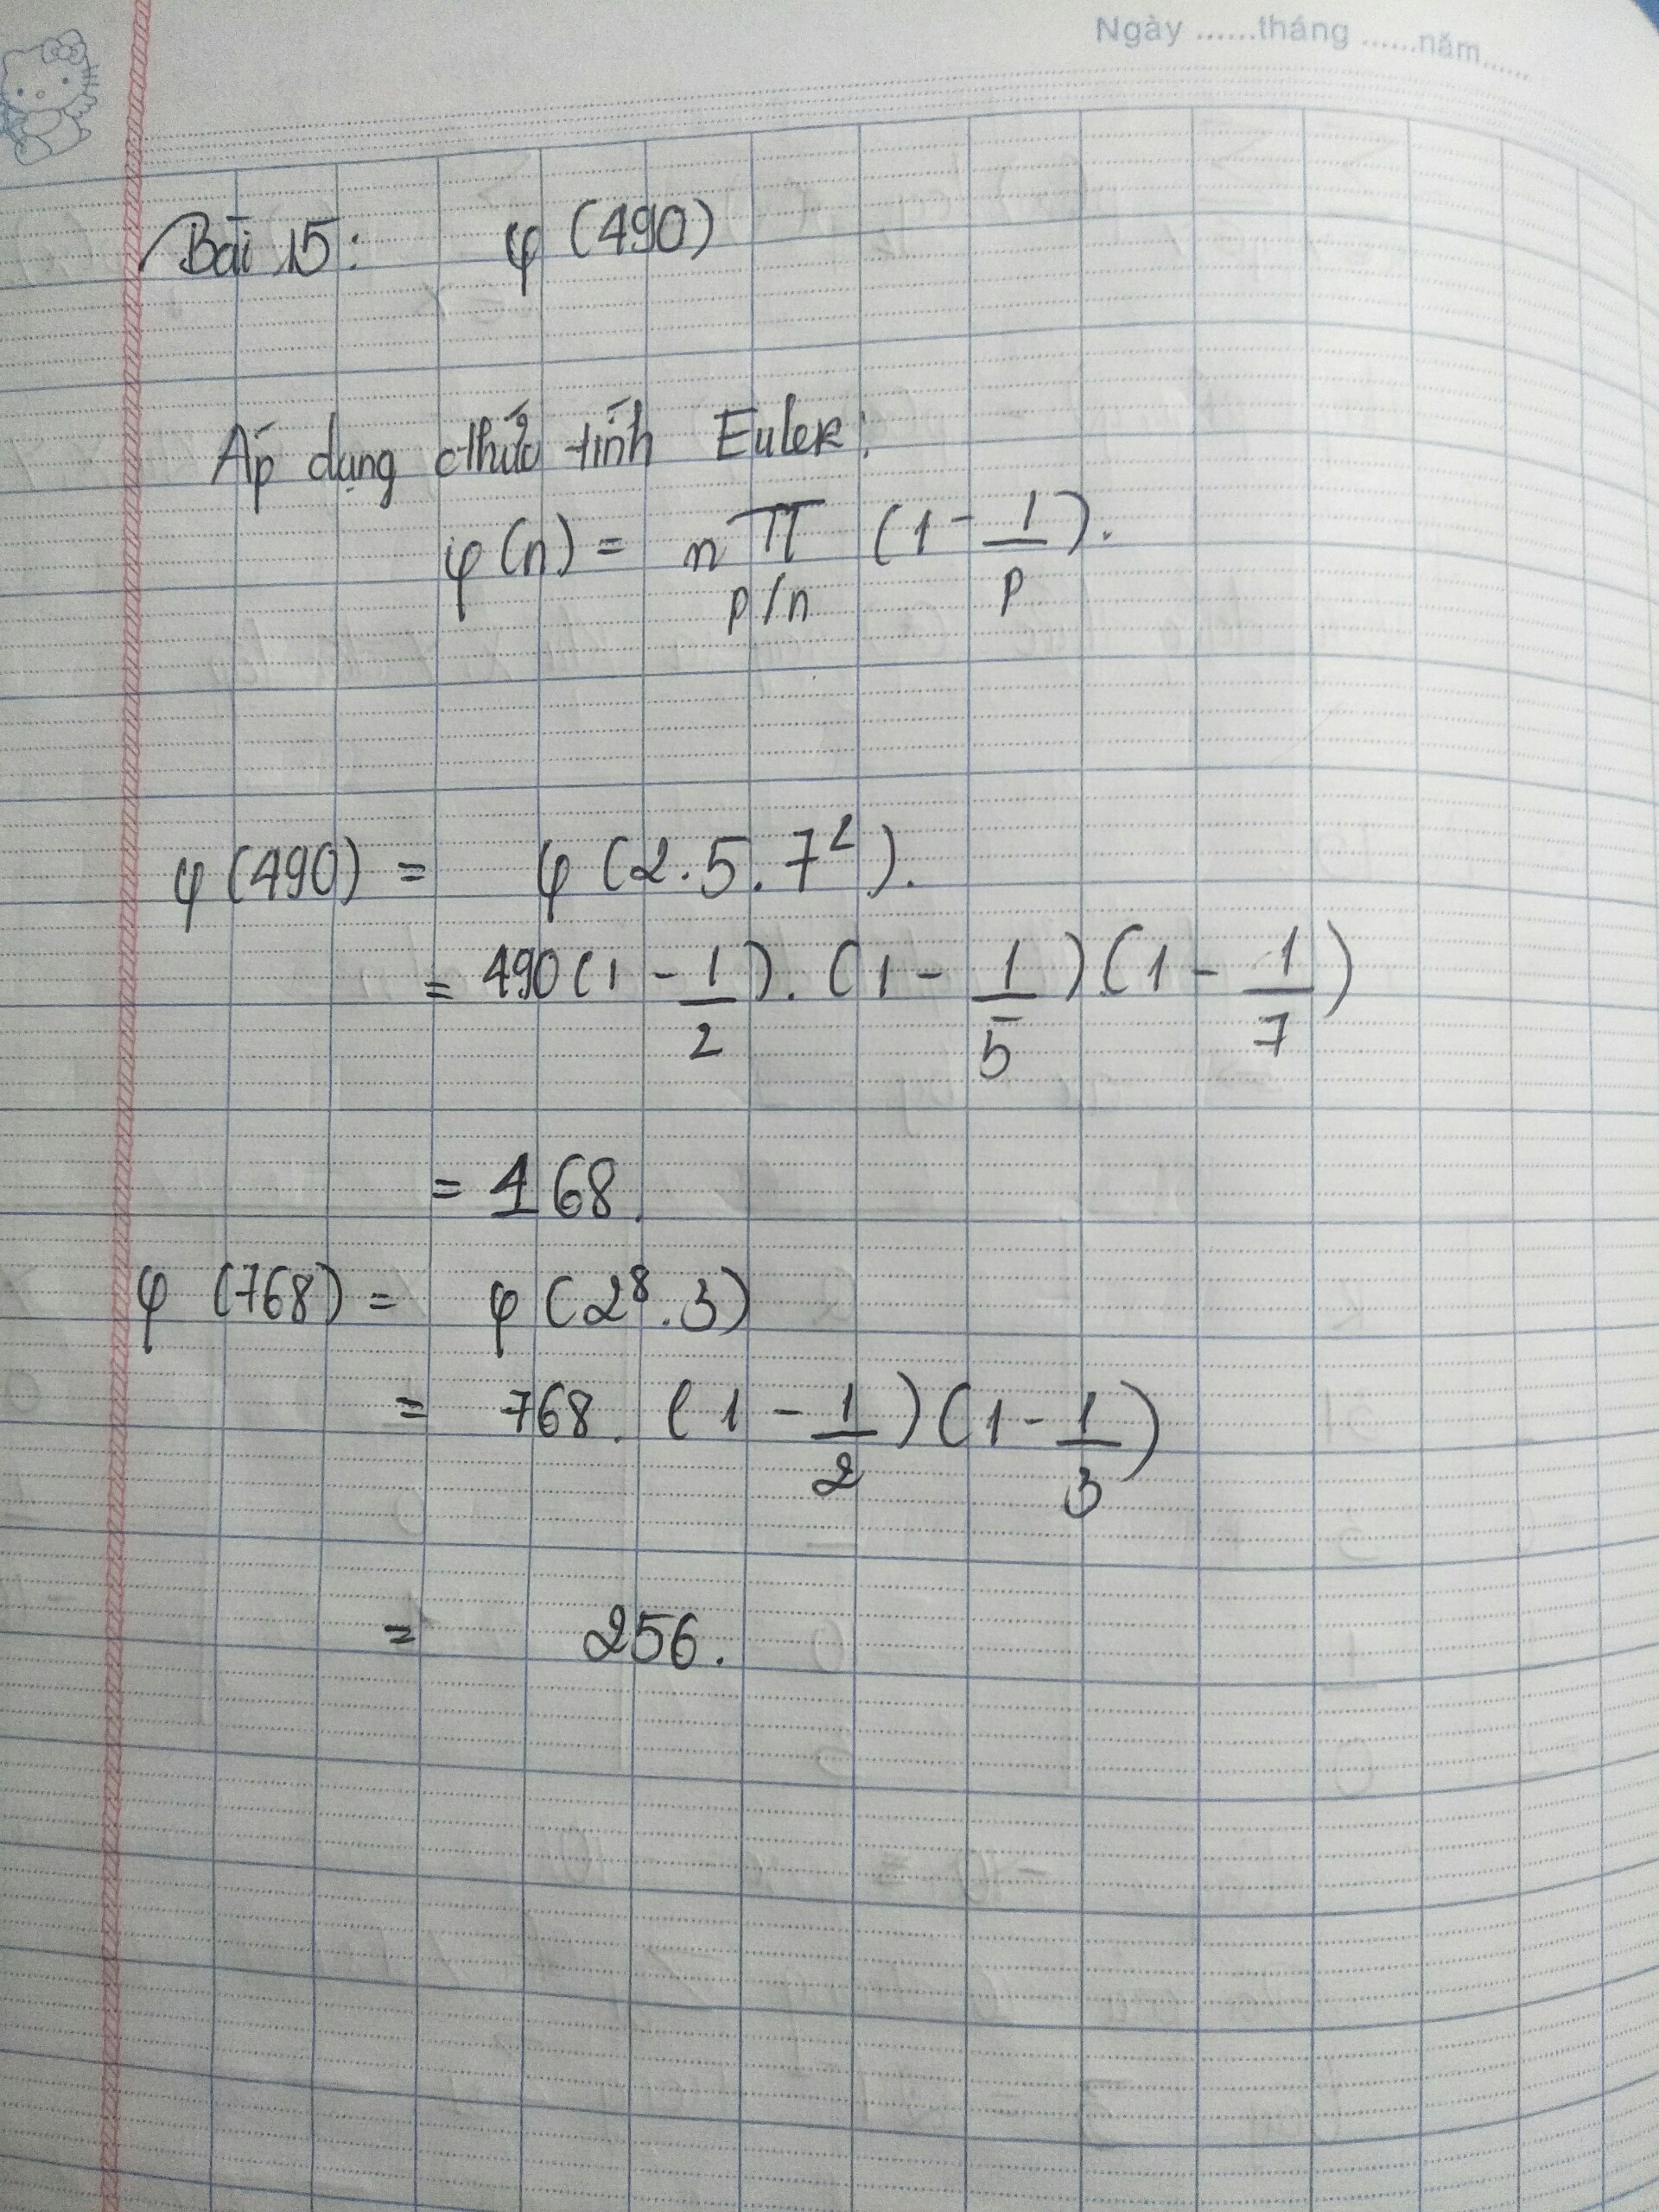 Ngày ......tháng ......năm......
Bài 15: φ(490)
Áp dụng cthức tính Euler:
φ(n) = n ∏ (1 - 1/p).
p/n
φ(490) = φ(2.5.7²).
= 490(1 - 1/2).(1 - 1/5)(1 - 1/7)
= 168.
φ(768) = φ(2⁸.3)
= 768.(1 - 1/2)(1 - 1/3)
= 256.